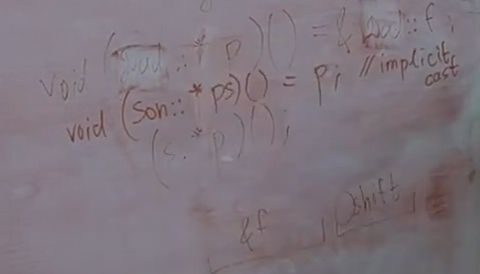 void (dad::* p)() = & dad::f;
void (son::* ps)() = p; // implicit cast
(s.* p)();
&f shift